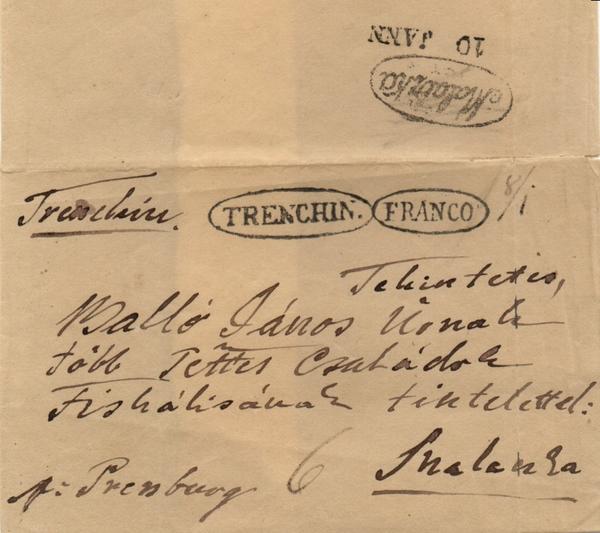 10 JANN
Malaczka
Trenchin.
TRENCHIN.
FRANCO
8/1
Tekintetes,
Balló János Úrnak
több Tettes Családok
Fiskálisának tisztelettel:
pr: Pressburg
6
Malaczka